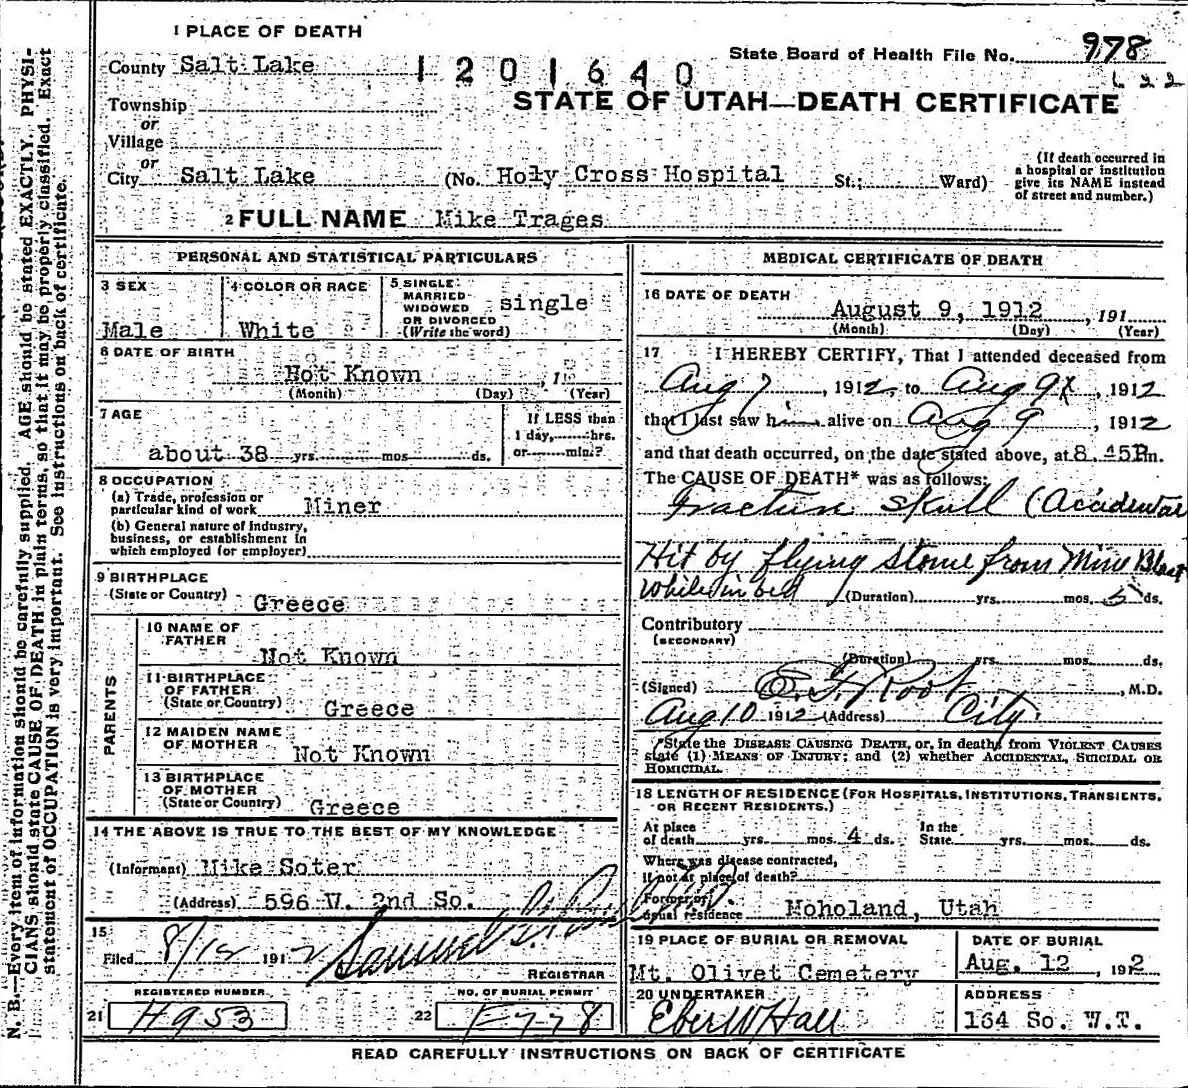 1 PLACE OF DEATH
County Salt Lake
1 2 0 1 6 4 0
State Board of Health File No. 978
622
STATE OF UTAH—DEATH CERTIFICATE
Township
or
Village
or
City Salt Lake (No. Holy Cross Hospital St.; Ward)
(If death occurred in
a hospital or institution
give its NAME instead
of street and number.)
2 FULL NAME Mike Trages
PERSONAL AND STATISTICAL PARTICULARS
3 SEX
Male
4 COLOR OR RACE
White
5 SINGLE
MARRIED
WIDOWED
OR DIVORCED
(Write the word)
single
6 DATE OF BIRTH
Not Known , 1
(Month) (Day) (Year)
7 AGE
about 38 yrs. mos. ds.
If LESS than
1 day, hrs.
or min.?
8 OCCUPATION
(a) Trade, profession or
particular kind of work Miner
(b) General nature of industry,
business, or establishment in
which employed (or employer)
9 BIRTHPLACE
(State or Country) Greece
PARENTS
10 NAME OF
FATHER
Not Known
11 BIRTHPLACE
OF FATHER
(State or Country) Greece
12 MAIDEN NAME
OF MOTHER
Not Known
13 BIRTHPLACE
OF MOTHER
(State or Country) Greece
14 THE ABOVE IS TRUE TO THE BEST OF MY KNOWLEDGE
(Informant) Mike Soter
(Address) 596 W. 2nd So.
15
Filed 8/12 1912 Samuel
REGISTRAR
REGISTERED NUMBER
21 H953
NO. OF BURIAL PERMIT
22 F778
MEDICAL CERTIFICATE OF DEATH
16 DATE OF DEATH
August 9, 1912 , 191
(Month) (Day) (Year)
17 I HEREBY CERTIFY, That I attended deceased from
Aug 7 , 1912, to Aug 9 , 1912
that I last saw him alive on Aug 9 , 1912
and that death occurred, on the date stated above, at 8.45P m.
The CAUSE OF DEATH* was as follows:
Fracture Skull (Accidental
Hit by flying stone from Mine Blast
while in bed (Duration) yrs. mos. 5 ds.
Contributory
(SECONDARY)
(Duration) yrs. mos. ds.
(Signed) E. F. Root , M.D.
Aug 10 1912 (Address) City
*State the DISEASE CAUSING DEATH, or, in deaths from VIOLENT CAUSES
state (1) MEANS OF INJURY; and (2) whether ACCIDENTAL, SUICIDAL OR
HOMICIDAL.
18 LENGTH OF RESIDENCE (FOR HOSPITALS, INSTITUTIONS, TRANSIENTS,
OR RECENT RESIDENTS.)
At place
of death yrs. mos. 4 ds.
In the
State yrs. mos. ds.
Where was disease contracted,
if not at place of death?
Former or
usual residence Moholand, Utah
19 PLACE OF BURIAL OR REMOVAL
Mt. Olivet Cemetery
DATE OF BURIAL
Aug. 12 , 1912
20 UNDERTAKER
Eber W Hall
ADDRESS
164 So. W.T.
READ CAREFULLY INSTRUCTIONS ON BACK OF CERTIFICATE
N. B.—Every item of information should be carefully supplied. AGE should be stated EXACTLY. PHYSI-
CIANS should state CAUSE OF DEATH in plain terms, so that it may be properly classified. Exact
statement of OCCUPATION is very important. See instructions on back of certificate.